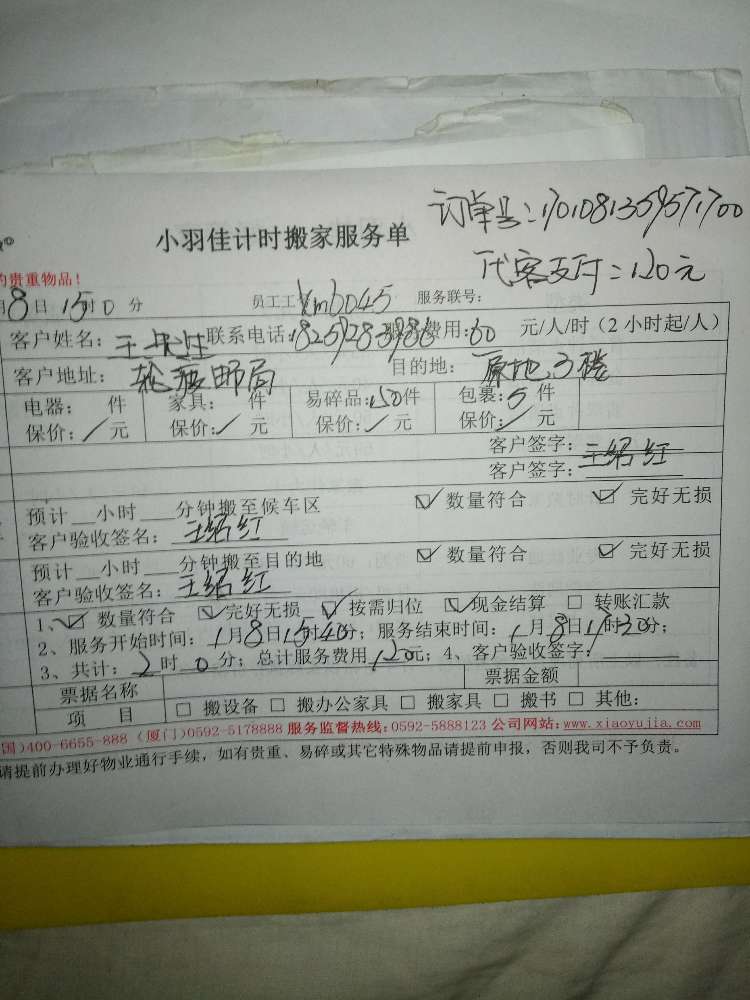 订单号:1701081359571700
小羽佳计时搬家服务单
代客支付:120元
的贵重物品!
月8日15时0分 员工工 Xm6045 服务联号:
客户姓名:王 联系电话: 费用:60 元/人/时(2小时起/人)
客户地址: 邮局 目的地:原地3楼
电器: 件 家具: 件 易碎品:50件 包裹:5件
保价:/元 保价:/元 保价:/元 保价:/元
客户签字:王绍红
客户签字:
预计__小时___分钟搬至候车区 ☑数量符合 ☑完好无损
客户验收签名:王绍红
预计__小时___分钟搬至目的地 ☑数量符合 ☑完好无损
客户验收签名:王绍红
1、☑数量符合 ☑完好无损 ☑按需归位 ☑现金结算 □转账汇款
2、服务开始时间:1月8日15时40分;服务结束时间:1月8日1时30分;
3、共计:2时0分;总计服务费用120元;4、客户验收签字:
票据名称 票据金额
项目 □搬设备 □搬办公家具 □搬家具 □搬书 □其他:
国)400-6655-888 (厦门)0592-5178888 服务监督热线:0592-5888123 公司网站:www.xiaoyujia.com
请提前办理好物业通行手续,如有贵重、易碎或其它特殊物品请提前申报,否则我司不予负责。